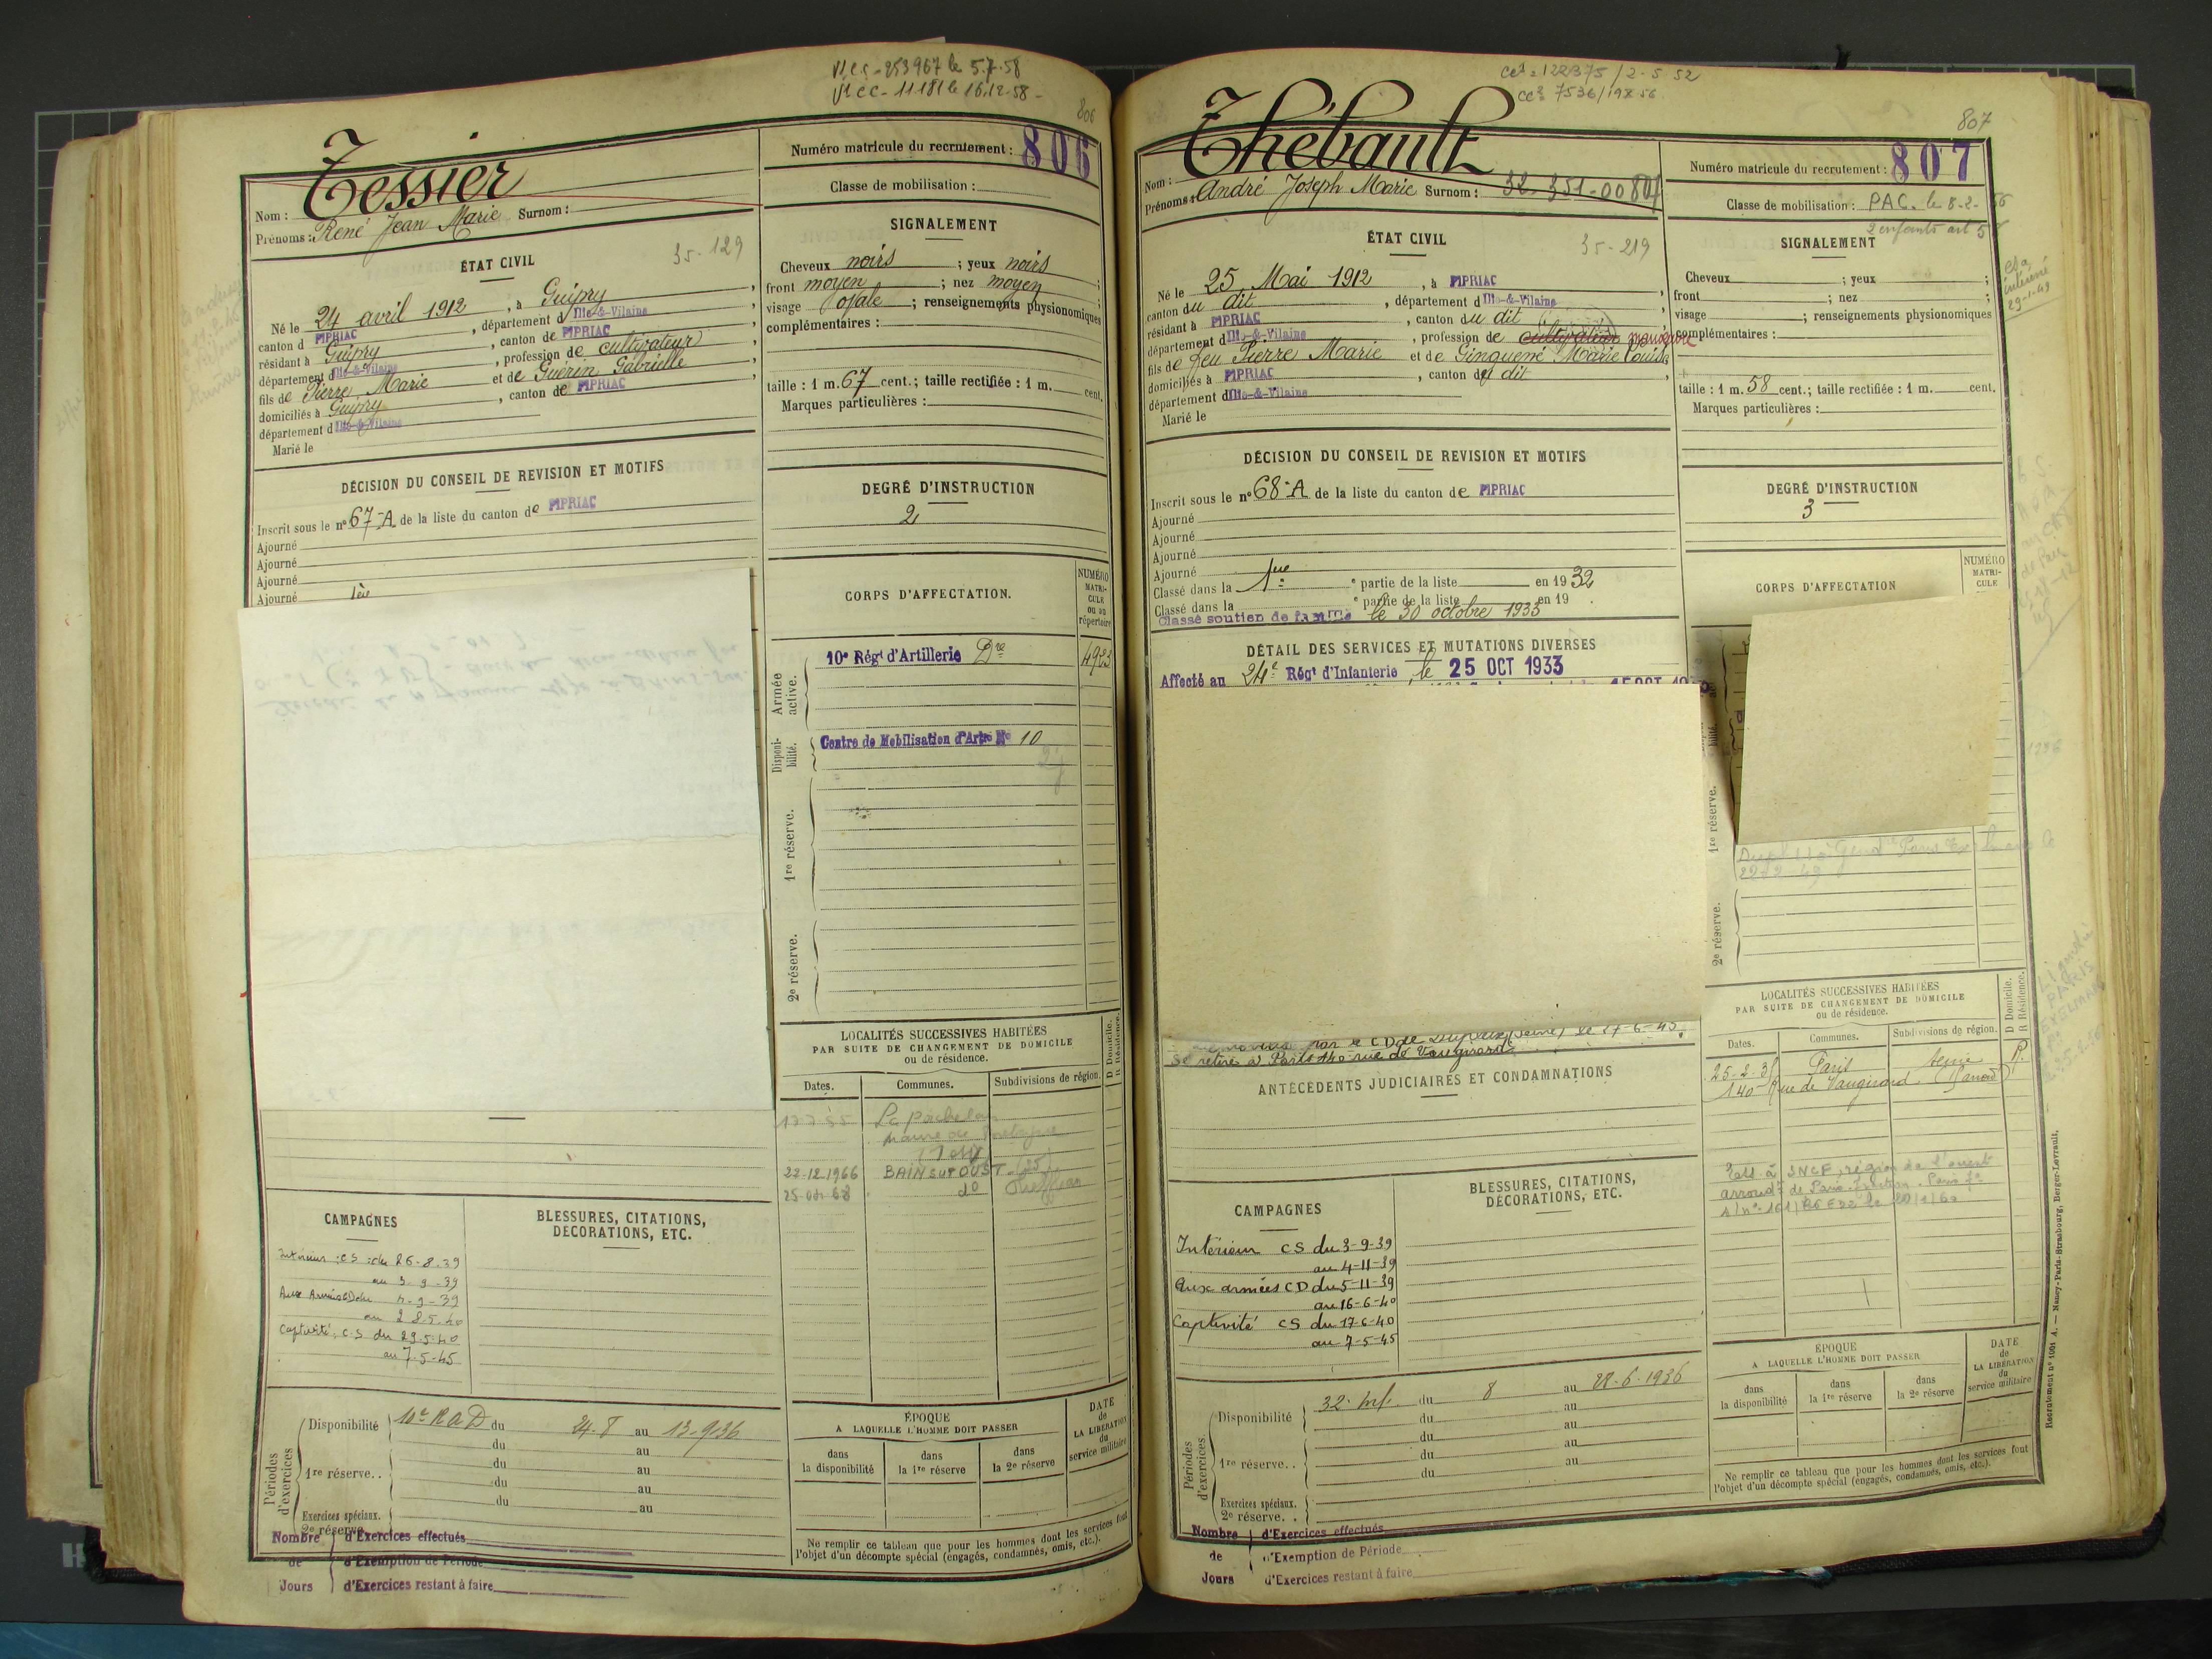 V1 CC - 253967 le 5.7.58
V1 CC - 11181 le 16.12.58 -
806
Tessier
Nom :
Prénoms : René Jean Marie Surnom :
Numéro matricule du recrutement : 806
Classe de mobilisation :
ÉTAT CIVIL
35-129
Né le 24 avril 1912, à Guipry,
canton d PIPRIAC, département d Ille-&-Vilaine,
résidant à Guipry, canton de PIPRIAC,
département d Ille-&-Vilaine, profession de cultivateur,
fils de Pierre, Marie et de Guérin Gabrielle,
domiciliés à Guipry, canton de PIPRIAC,
département d Ille-&-Vilaine
Marié le
SIGNALEMENT
Cheveux noirs ; yeux noirs ;
front moyen ; nez moyen ;
visage ovale ; renseignements physionomiques
complémentaires :
taille : 1 m. 67 cent.; taille rectifiée : 1 m. cent.
Marques particulières :
DÉCISION DU CONSEIL DE REVISION ET MOTIFS
Inscrit sous le n° 67-A de la liste du canton de PIPRIAC
Ajourné
Ajourné
Ajourné
Ajourné
DEGRÉ D'INSTRUCTION
2
CORPS D'AFFECTATION.
NUMÉRO MATRI-CULE ou au répertoire
Armée active.
10e Régt d'Artillerie Dre 4923
Disponi-bilité.
Centre de Mobilisation d'Artie No 10
1re réserve.
2e réserve.
LOCALITÉS SUCCESSIVES HABITÉES
PAR SUITE DE CHANGEMENT DE DOMICILE
ou de résidence.
D Domicile.
R Résidence.
Dates. Communes. Subdivisions de région.
22-12-1966 BAIN SUR OUST (35)
do
CAMPAGNES
Intérieur : CS : du 26-8-39
au 3-9-39
Aux Armées CD du 4-9-39
au 28-5-40
Captivité, C.S. du 29-5-40
au 7-5-45
BLESSURES, CITATIONS,
DÉCORATIONS, ETC.
Périodes d'exercices
Disponibilité 10e RAD du 24-8 au 13-9-36
du au
1re réserve.. du au
du au
du au
Exercices spéciaux.
2e réserve.
Nombre d'Exercices effectués
de d'Exemption de Période
Jours d'Exercices restant à faire
ÉPOQUE
A LAQUELLE L'HOMME DOIT PASSER
dans la disponibilité
dans la 1re réserve
dans la 2e réserve
DATE de LA LIBÉRATION du service militaire
Ne remplir ce tableau que pour les hommes dont les services font
l'objet d'un décompte spécial (engagés, condamnés, omis, etc.).
cc1 = 122375 / 2-5 52
807
Thébault
Nom :
Prénoms : André Joseph Marie Surnom : 32-351-00807
Numéro matricule du recrutement : 807
Classe de mobilisation : PAC. le 8-2-56
2 enfants art 5
ÉTAT CIVIL
35-219
Né le 25 Mai 1912, à PIPRIAC
canton du dit, département d Ille-&-Vilaine,
résidant à PIPRIAC, canton du dit
département d Ille-&-Vilaine, profession de cultivateur manœuvre
fils de feu Pierre Marie et de Ginguené Marie Louise
domiciliés à PIPRIAC, canton du dit,
département d Ille-&-Vilaine
Marié le
SIGNALEMENT
Cheveux ; yeux ;
front ; nez ;
visage ; renseignements physionomiques
complémentaires :
taille : 1 m. 58 cent.; taille rectifiée : 1 m. cent.
Marques particulières :
DÉCISION DU CONSEIL DE REVISION ET MOTIFS
Inscrit sous le n° 68-A de la liste du canton de PIPRIAC
Ajourné
Ajourné
Ajourné
Ajourné
Classé dans la 1re e partie de la liste en 1932
Classé dans la e partie de la liste en 19 .
Classé soutien de famille le 30 octobre 1933
DEGRÉ D'INSTRUCTION
3
CORPS D'AFFECTATION
NUMÉRO MATRI-CULE
DÉTAIL DES SERVICES ET MUTATIONS DIVERSES
Affecté au 24e Régt d'Infanterie, le 25 OCT 1933
1re réserve.
2e réserve.
par le CD de (Seine) le 27-6-45.
Se retire à Paris 140 rue de Vaugirard
ANTÉCÉDENTS JUDICIAIRES ET CONDAMNATIONS
LOCALITÉS SUCCESSIVES HABITÉES
PAR SUITE DE CHANGEMENT DE DOMICILE
ou de résidence.
D Domicile.
R Résidence.
Dates. Communes. Subdivisions de région.
25-2-35 Paris Seine R.
140 Rue de Vaugirard
SNCF, région de l'ouest
CAMPAGNES
Intérieur CS du 3-9-39
au 4-11-39
Aux armées CD du 5-11-39
au 16-6-40
Captivité CS du 17-6-40
au 7-5-45
BLESSURES, CITATIONS,
DÉCORATIONS, ETC.
Périodes d'exercices.
Disponibilité 32e Inf. du 8 au 28-6-1936
du au
du au
1re réserve.. du au
du au
Exercices spéciaux.
2e réserve. .
Nombre d'Exercices effectués
de d'Exemption de Période
Jours d'Exercices restant à faire
ÉPOQUE
A LAQUELLE L'HOMME DOIT PASSER
dans la disponibilité
dans la 1re réserve
dans la 2e réserve
DATE de LA LIBÉRATION du service militaire
Ne remplir ce tableau que pour les hommes dont les services font
l'objet d'un décompte spécial (engagés, condamnés, omis, etc.).
Recrutement n° 1061 A. — Nancy-Paris-Strasbourg, Berger-Levrault.